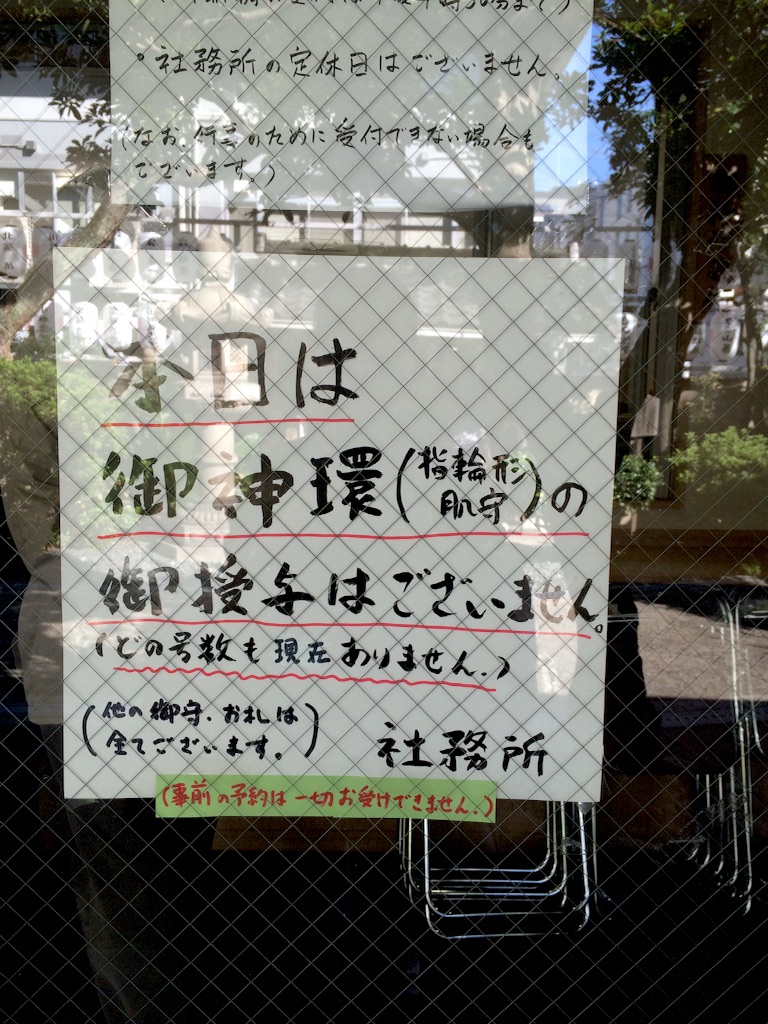 ・社務所の定休日はございません。
(なお、行事のために受付できない場合も
でございます。)
本日は
御神環(指輪形
肌守)の
御授与はございません。
(どの号数も現在ありません。)
(他の御守、お札は
全てございます。)
社務所
(事前の予約は一切お受けできません。)